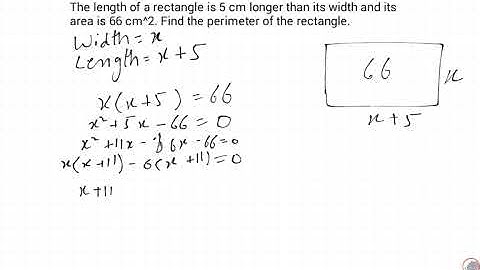 The length of a rectangle is 5 cm longer than its width and its
area is 66 cm^2. Find the perimeter of the rectangle.
Width = x
Length = x + 5
x(x+5) = 66
x² + 5x - 66 = 0
x² + 11x - 6x - 66 = 0
x(x+11) - 6(x+11) = 0
x + 11
66
x
x + 5